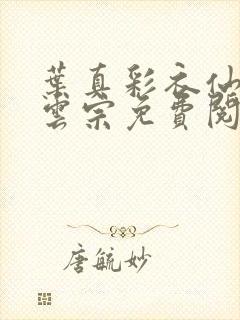 葉真彩衣仙
雲宗免費閱
唐毓妙